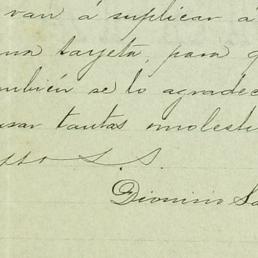 van á suplicar á
una tarjeta, para q
mbién se lo agradec
usar tantas molesti
S. S.
Dionisio Sa